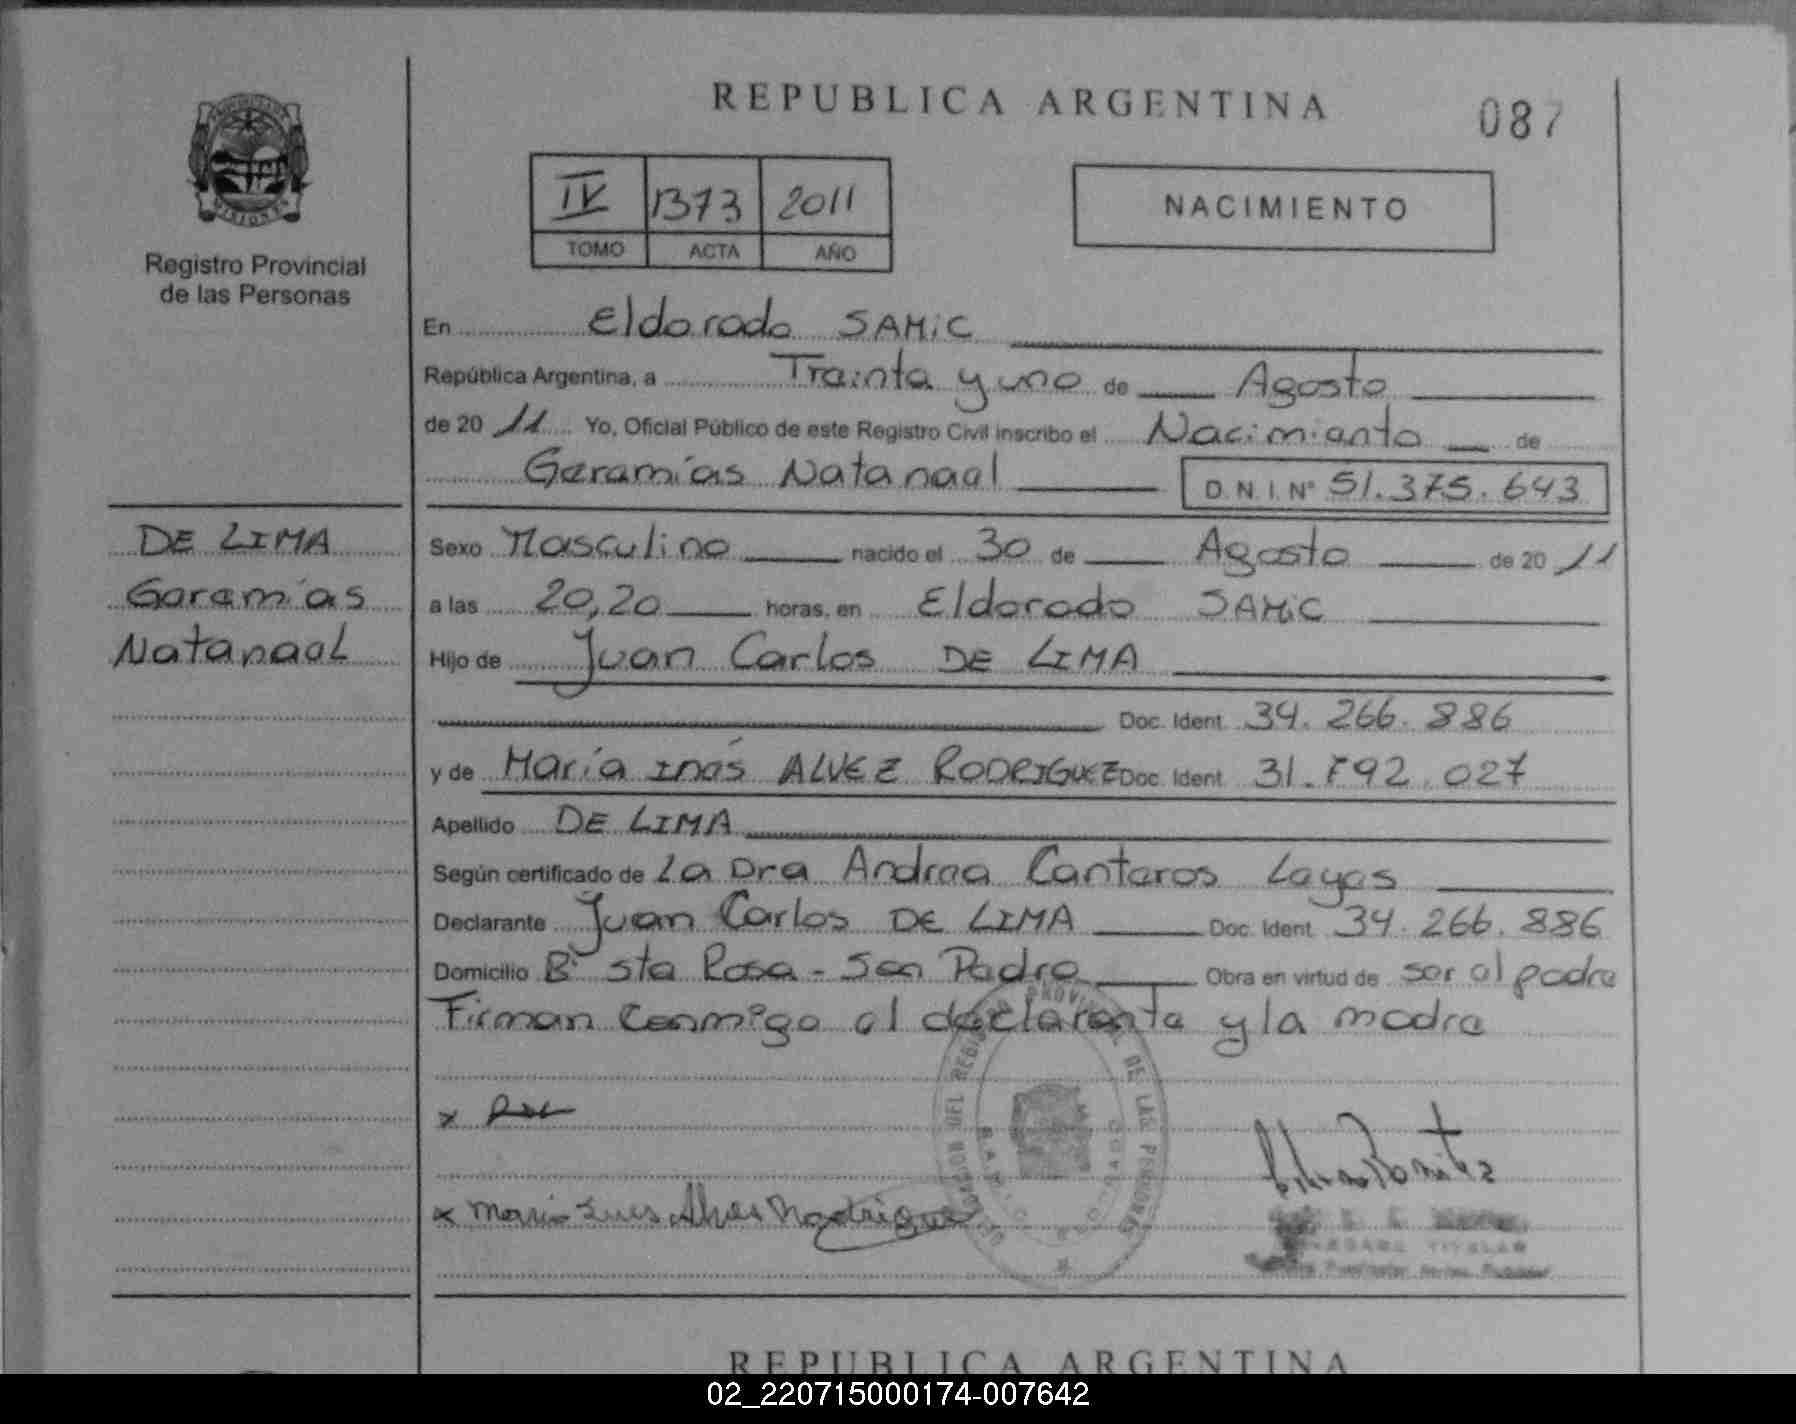 REPUBLICA ARGENTINA
087
IV 1373 2011
TOMO ACTA AÑO
NACIMIENTO
MISIONES
Registro Provincial
de las Personas
En Eldorado SAMIC
República Argentina, a Treinta y uno de Agosto
de 20 11 Yo, Oficial Público de este Registro Civil inscribo el Nacimiento de
Geremías Natanael D.N.I. Nº 51.375.643
DE LIMA
Geremías
Natanael
Sexo Masculino nacido el 30 de Agosto de 20 11
a las 20,20 horas, en Eldorado SAMIC
Hijo de Juan Carlos DE LIMA
Doc. Ident. 34.266.886
y de María Inés ALVEZ RODRIGUEZ Doc. Ident. 31.792.027
Apellido DE LIMA
Según certificado de La Dra Andrea Canteros Leyes
Declarante Juan Carlos DE LIMA Doc. Ident. 34.266.886
Domicilio Bº Sta Rosa - San Pedro Obra en virtud de ser el padre
Firman Conmigo el declarante y la madre
x
x Maria Ines Alves Rodrigues
DELEGACION DEL REGISTRO PROVINCIAL DE LAS PERSONAS
TITULAR
REPUBLICA ARGENTINA
02_220715000174-007642